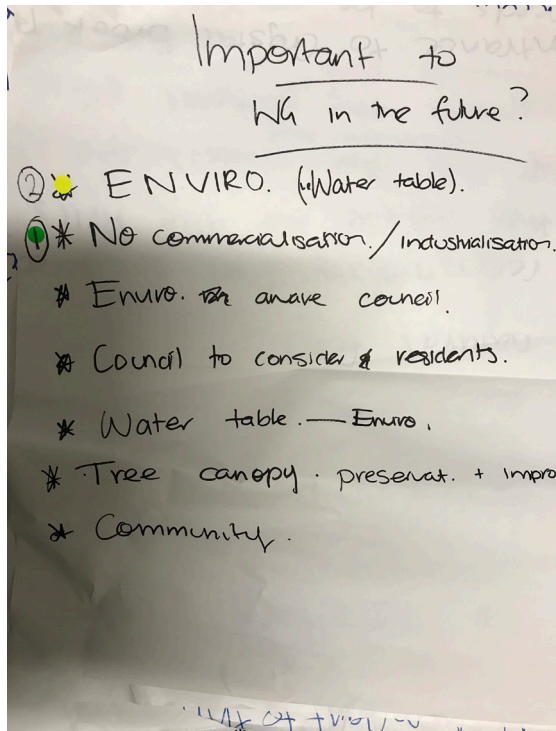 Important to
WG in the future?
② * ENVIRO. (Water table).
① * No commercialisation./industrialisation.
* Enviro. aware council.
* Council to consider residents.
* Water table. — Enviro.
* Tree canopy. preservat. + impro
* Community.